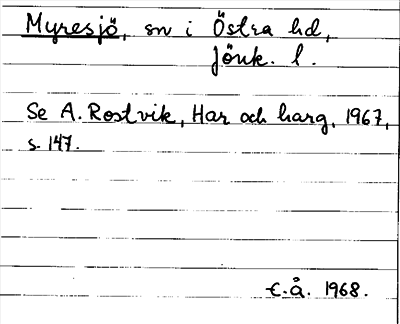 Myresjö, sn i Östra hd,
Jönk. l.
Se A. Rostvik, Har och harg, 1967,
s. 147.
€.å. 1968.